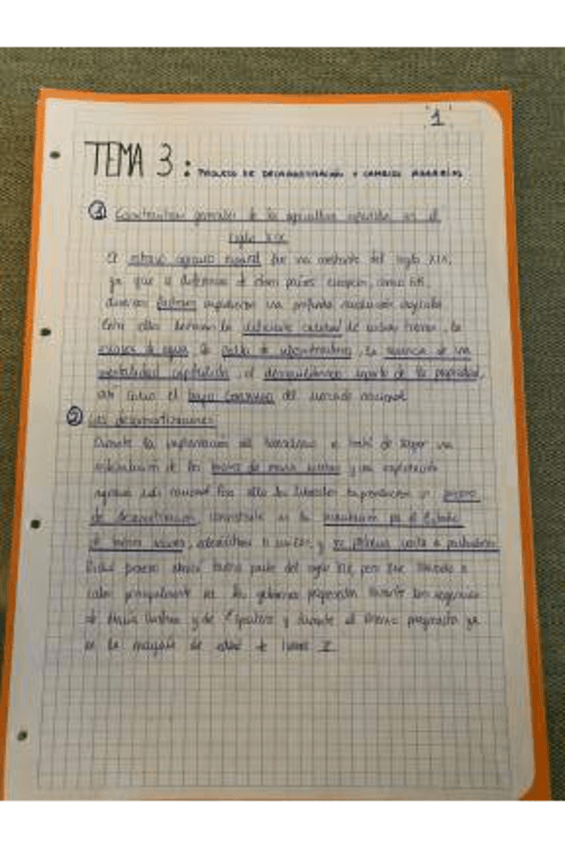 1
TEMA 3: PROCESO DE DESAMORTIZACIÓN Y CAMBIOS AGRARIOS
① Características generales de la agricultura española en el
siglo XIX
El atraso agrario español fue una constante del siglo XIX,
ya que a diferencia de otros países europeos, como GB,
diversos factores impidieron una profunda revolución agrícola
Entre ellos destacan la deficiente calidad de muchas tierras, la
escasez de agua, la falta de infraestructuras, la ausencia de una
mentalidad capitalista, el desequilibrado reparto de la propiedad,
así como el bajo consumo del mercado nacional
② Las desamortizaciones
Durante la implantación del liberalismo se trató de llegar una
de los bienes de manos muertas y una explotación
agraria más racional Para ello los liberales emprendieron un proceso
de desamortización, consistente en la incautación por el Estado
de bienes raíces, y su posterior venta a particulares
Dicho proceso abarcó buena parte del siglo XIX, pero fue llevado a
cabo principalmente por los gobiernos progresistas durante las regencias
de María Cristina y de Espartero y durante el Bienio progresista ya
en la mayoría de edad de Isabel II